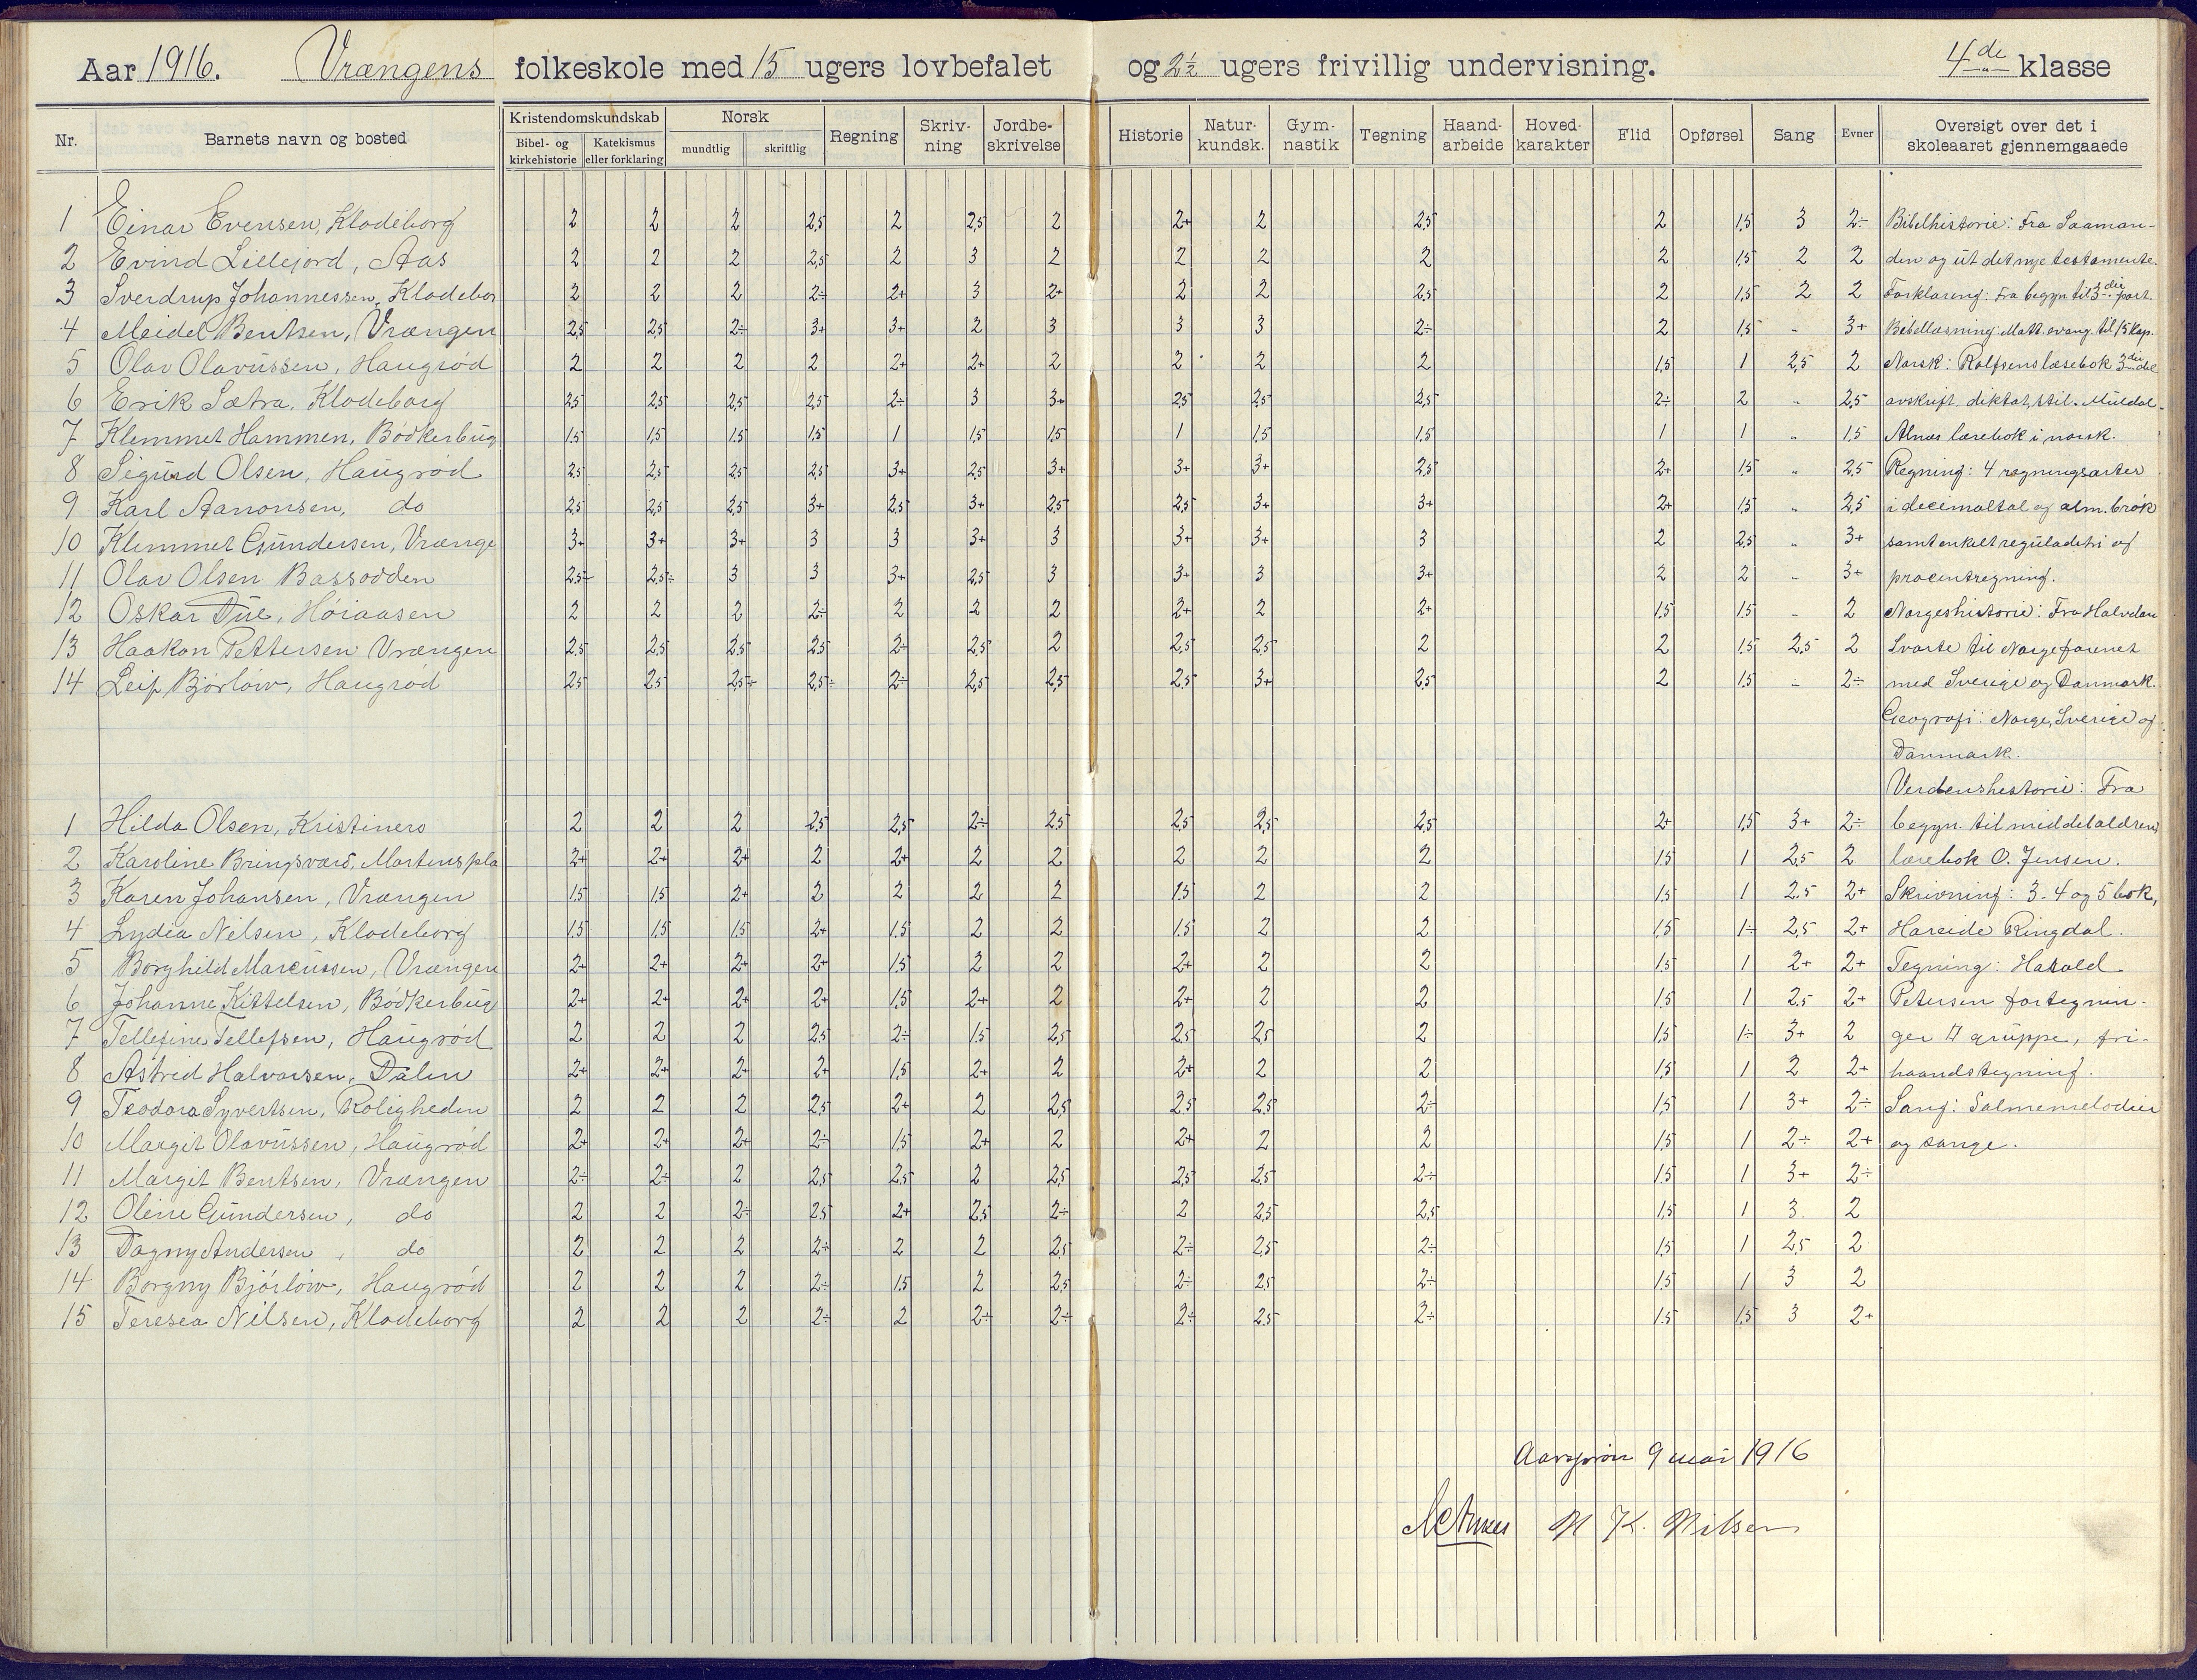 Aar 1916. Vrængens folkeskole med 15 ugers lovbefalet og 2½ ugers frivillig undervisning. 4de klasse
Nr. Barnets navn og bosted Kristendomskundskab Bibel- og kirkehistorie Katekismus eller forklaring Norsk mundtlig skriftlig Regning Skriv-ning Jordbe-skrivelse Historie Natur-kundsk. Gym-nastik Tegning Haand-arbeide Hoved-karakter Flid Opførsel Sang Evner Oversigt over det i skoleaaret gjennemgaaede
1 Einar Evensen, Klodeborg 2 2 2 2,5 2 2,5 2 2+ 2 2,5 2 1,5 3 2÷ Bibelhistorie: Fra Saaman-
2 Evind Lillejord, Aas 2 2 2 2,5 2 3 2 2 2 2 2 1,5 2 2 den og ut det nye testamente.
3 Sverdrup Johannessen, Klodebor 2 2 2 2÷ 2+ 3 2+ 2 2 2,5 2 1,5 2 2 Forklaring: Fra begyn til 3die part.
4 Meidel Bentsen, Vrængen 2,5 2,5 2÷ 3+ 3+ 2 3 3 3 2÷ 2 1,5 " 3+ Bibellæsning: Matt. evang. til 15 kap.
5 Olav Olavussen, Haugrød 2 2 2 2 2+ 2+ 2 2 2 2 1,5 1 2,5 2 Norsk: Rolfsens læsebok 3die del
6 Erik Sætra, Klodeborg 2,5 2,5 2,5 2,5 2÷ 3 3+ 2,5 2,5 2,5 2÷ 2 " 2,5 avskrift, diktat, stil. Muldal-
7 Klemmet Hammen, Bødkerbug 1,5 1,5 1,5 1,5 1 1,5 1,5 1 1,5 1,5 1 1 " 1,5 Alnæs lærebok i norsk.
8 Sigurd Olsen, Haugrød 2,5 2,5 2,5 2,5 3+ 2,5 3+ 3+ 3+ 2,5 2+ 1,5 " 2,5 Regning: 4 regningsarter
9 Karl Aanonsen, do 2,5 2,5 2,5 3+ 2,5 3+ 2,5 2,5 3+ 3+ 2+ 1,5 " 2,5 i decimaltal og alm. brøk
10 Klemmet Gundersen, Vrænge 3+ 3+ 3+ 3 3 3+ 3 3+ 3+ 3 2 2,5 " 3+ samt enkelt reguladetri og
11 Olav Olsen Bassodden 2,5÷ 2,5÷ 3 3 3+ 2,5 3 3+ 3 3+ 2 2 " 3+ procentregning.
12 Oskar Due, Høiaasen 2 2 2 2÷ 2 2 2 2+ 2 2+ 1,5 1,5 " 2 Norgeshistorie: Fra Halvdan
13 Haakon Pettersen Vrængen 2,5 2,5 2,5 2,5 2÷ 2,5 2 2,5 2,5 2 2 1,5 2,5 2 Svarte til Norge forenet
14 Leif Bjørløw, Haugrød 2,5 2,5 2,5÷ 2,5÷ 2÷ 2,5 2,5 2,5 3+ 2,5 2 1,5 " 2÷ med Sverige og Danmark.
Geografi: Norge, Sverige og
Danmark.
Verdenshistorie: Fra
1 Hilda Olsen, Kristinero 2 2 2 2,5 2,5 2÷ 2,5 2,5 2,5 2,5 2+ 1,5 3+ 2÷ begyn. til middelaldren,
2 Karoline Bringsværd, Martenspla 2+ 2+ 2+ 2 2+ 2 2 2 2 2 1,5 1 2,5 2 lærebok O. Jensen.
3 Karen Johansen, Vrængen 1,5 1,5 2+ 2 2 2 2 1,5 2 2 1,5 1 2,5 2+ Skrivning: 3-4 og 5 bok,
4 Lydia Nilsen, Klodeborg 1,5 1,5 1,5 2+ 1,5 2 2 1,5 2 2 1,5 1÷ 2,5 2+ Hareide Ringdal.
5 Borghild Marcussen, Vrængen 2+ 2+ 2+ 2+ 1,5 2 2 2+ 2 2 1,5 1 2+ 2+ Tegning: Harald
6 Johanne Kittelsen, Bødkerbug 2+ 2+ 2+ 2+ 1,5 2+ 2 2+ 2 2 1,5 1 2,5 2+ Petersen fortegnin-
7 Tellefine Tellefsen, Haugrød 2 2 2 2,5 2÷ 1,5 2,5 2,5 2,5 2 1,5 1÷ 3+ 2 ger gruppe, fri-
8 Astrid Halvorsen, Dalen 2+ 2+ 2+ 2+ 1,5 2+ 2 2+ 2 2 1,5 1 2 2+ haandstegning.
9 Teodora Syvertsen, Roligheden 2 2 2 2,5 2+ 2 2,5 2,5 2,5 2÷ 1,5 1 3+ 2÷ Sang: Salmemelodier
10 Margit Olavussen, Haugrød 2+ 2+ 2+ 2÷ 1,5 2+ 2 2+ 2 2 1,5 1 2÷ 2+ og sange.
11 Margit Bentsen, Vrængen 2÷ 2÷ 2 2,5 2,5 2 2,5 2,5 2,5 2÷ 1,5 1 3+ 2÷
12 Oline Gundersen, do 2 2 2÷ 2,5 2+ 2,5 2÷ 2 2,5 2,5 1,5 1 3 2
13 Dagny Andersen, do 2 2 2 2÷ 2 2 2,5 2÷ 2,5 2÷ 1,5 1 2,5 2
14 Borgny Bjørløw, Haugrød 2 2 2 2÷ 1,5 2 2,5 2÷ 2,5 2÷ 1,5 1 3 2
15 Teresea Nilsen, Klodeborg 2 2 2 2÷ 2 2÷ 2÷ 2÷ 2,5 2÷ 1,5 1,5 3 2+
Aarsprøve 9 mai 1916
N K. Nilsen